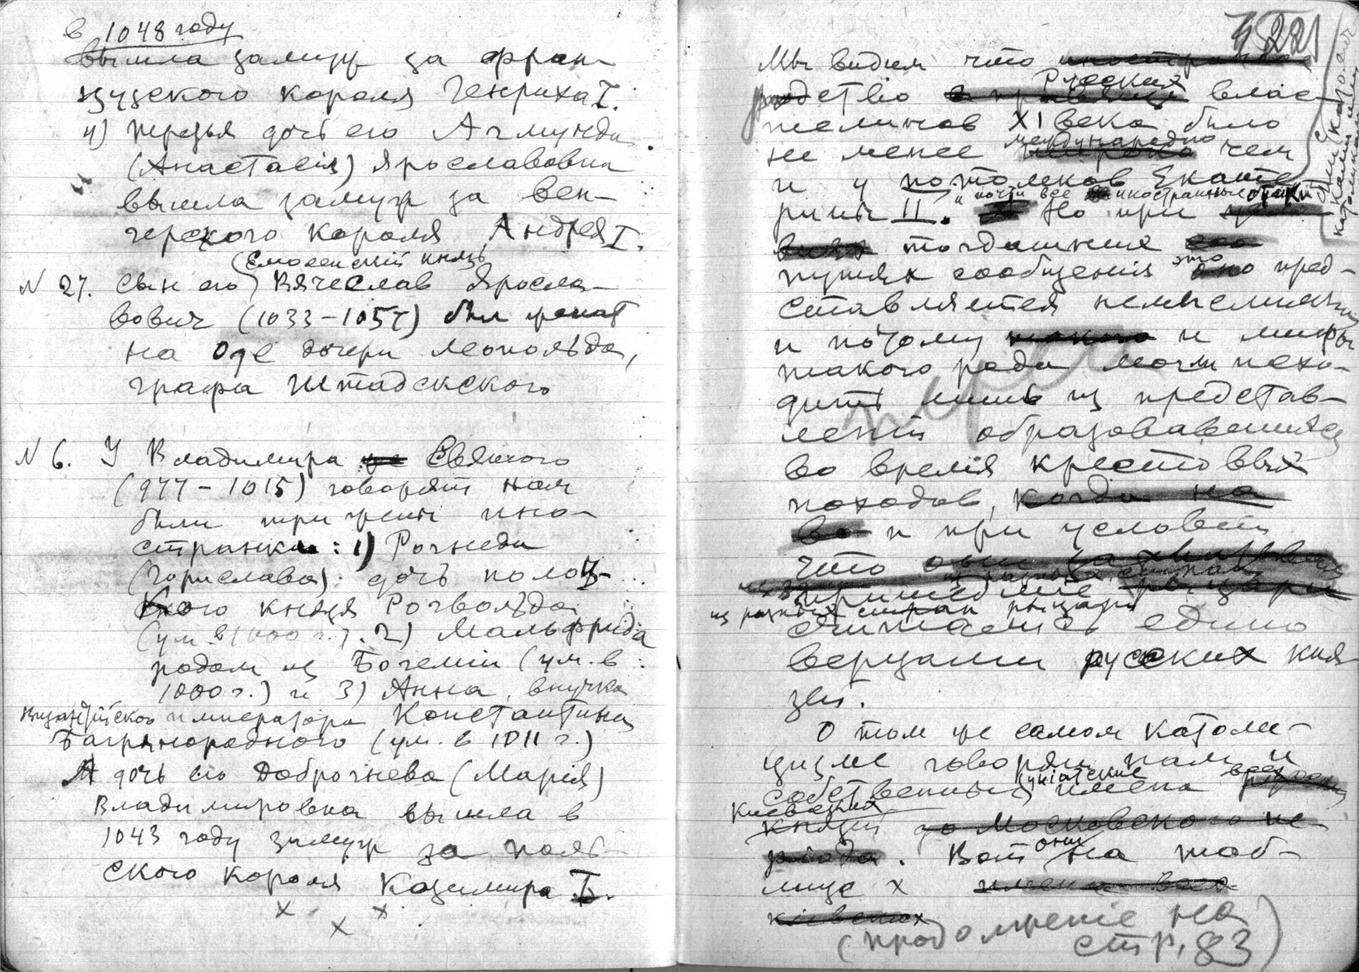 в 1048 году
вышла замуж за фран-
цузского короля Генриха I.
4) третья дочь его Агмунда
(Анастасія) Ярославовна
вышла замуж за вен-
герского короля Андрея I.
(Смоленскій князь)
N 27. Сын его Вячеслав Яросла-
вович (1033-1057) был женат
на Оде дочери Леопольда,
графа Штадскского
N 6. У Владимира Святого
(977-1015) говорят нам
были три жены ино-
странки: 1) Рогнеда
(Горислава). дочь полоц-
кого князя Рогвольда
(ум. в 1000 г.). 2) Мальфрида
родом из Богеміи (ум. в
1000 г.) и 3) Анна, внучка
Византійского императора Константина
Багрянородного (ум. в 1011 г.)
А дочь его Доброгнева (Марія)
Владимировна вышла в
1043 году замуж за поль-
ского короля Казимира I.
х х х
221
Мы видим что
родство Русских влас-
телинов XI века было
не менее международно чем
и у потомков Екате-
рины II. и почти все иностранные
Но при
тогдашних
путях сообщенія это пред-
ставляется немыслимым
и потому и мифы
такого рода могли исхо-
дить лишь из представ-
леній образовавшихся
во время крестовых
походов,
и при условіи
что
пришедшие
из разных стран рыцари
считались едино
верцами русских кня
зей.
О том же самом католи-
цизме говорят нам и
собственныя уніатские имена всех
Киевских
князей до Московского пе-
риода. Вот они на таб-
лице х имена всех
кіевских
(продолженіе на
стр. 83)